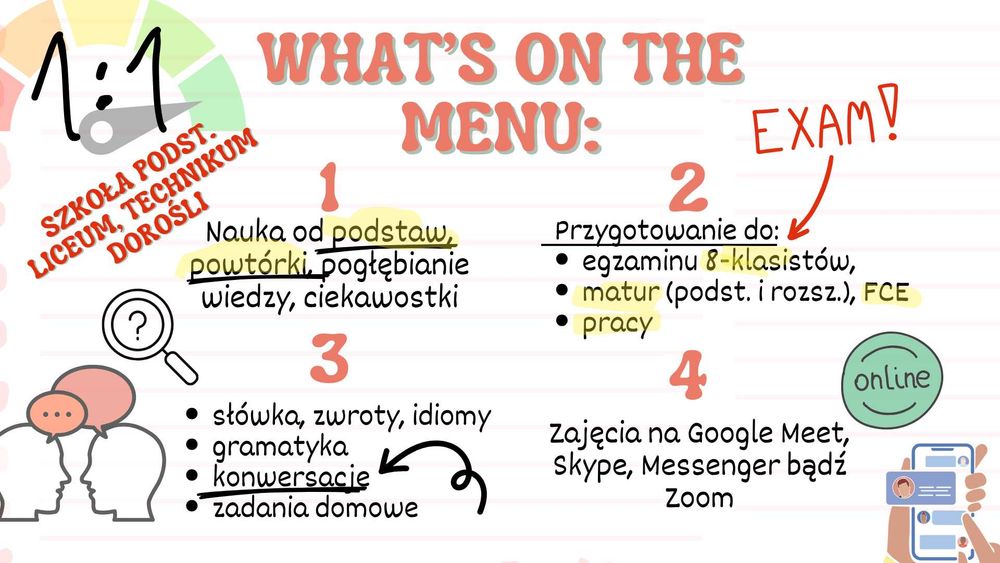 1:1
WHAT'S ON THE
MENU:
EXAM!
SZKOŁA PODST.
LICEUM, TECHNIKUM
DOROŚLI
1
Nauka od podstaw,
powtórki, pogłębianie
wiedzy, ciekawostki
2
Przygotowanie do:
• egzaminu 8-klasistów,
• matur (podst. i rozsz.), FCE
• pracy
?
3
• słówka, zwroty, idiomy
• gramatyka
• konwersacje
• zadania domowe
4
Zajęcia na Google Meet,
Skype, Messenger bądź
Zoom
online